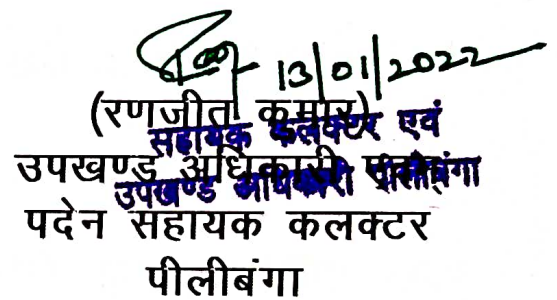 13/01/2022
(रणजीत कुमार)
सहायक कलक्टर एवं
उपखण्ड अधिकारी
उपखण्ड अधिकारी पीलीबंगा
पदेन सहायक कलक्टर
पीलीबंगा